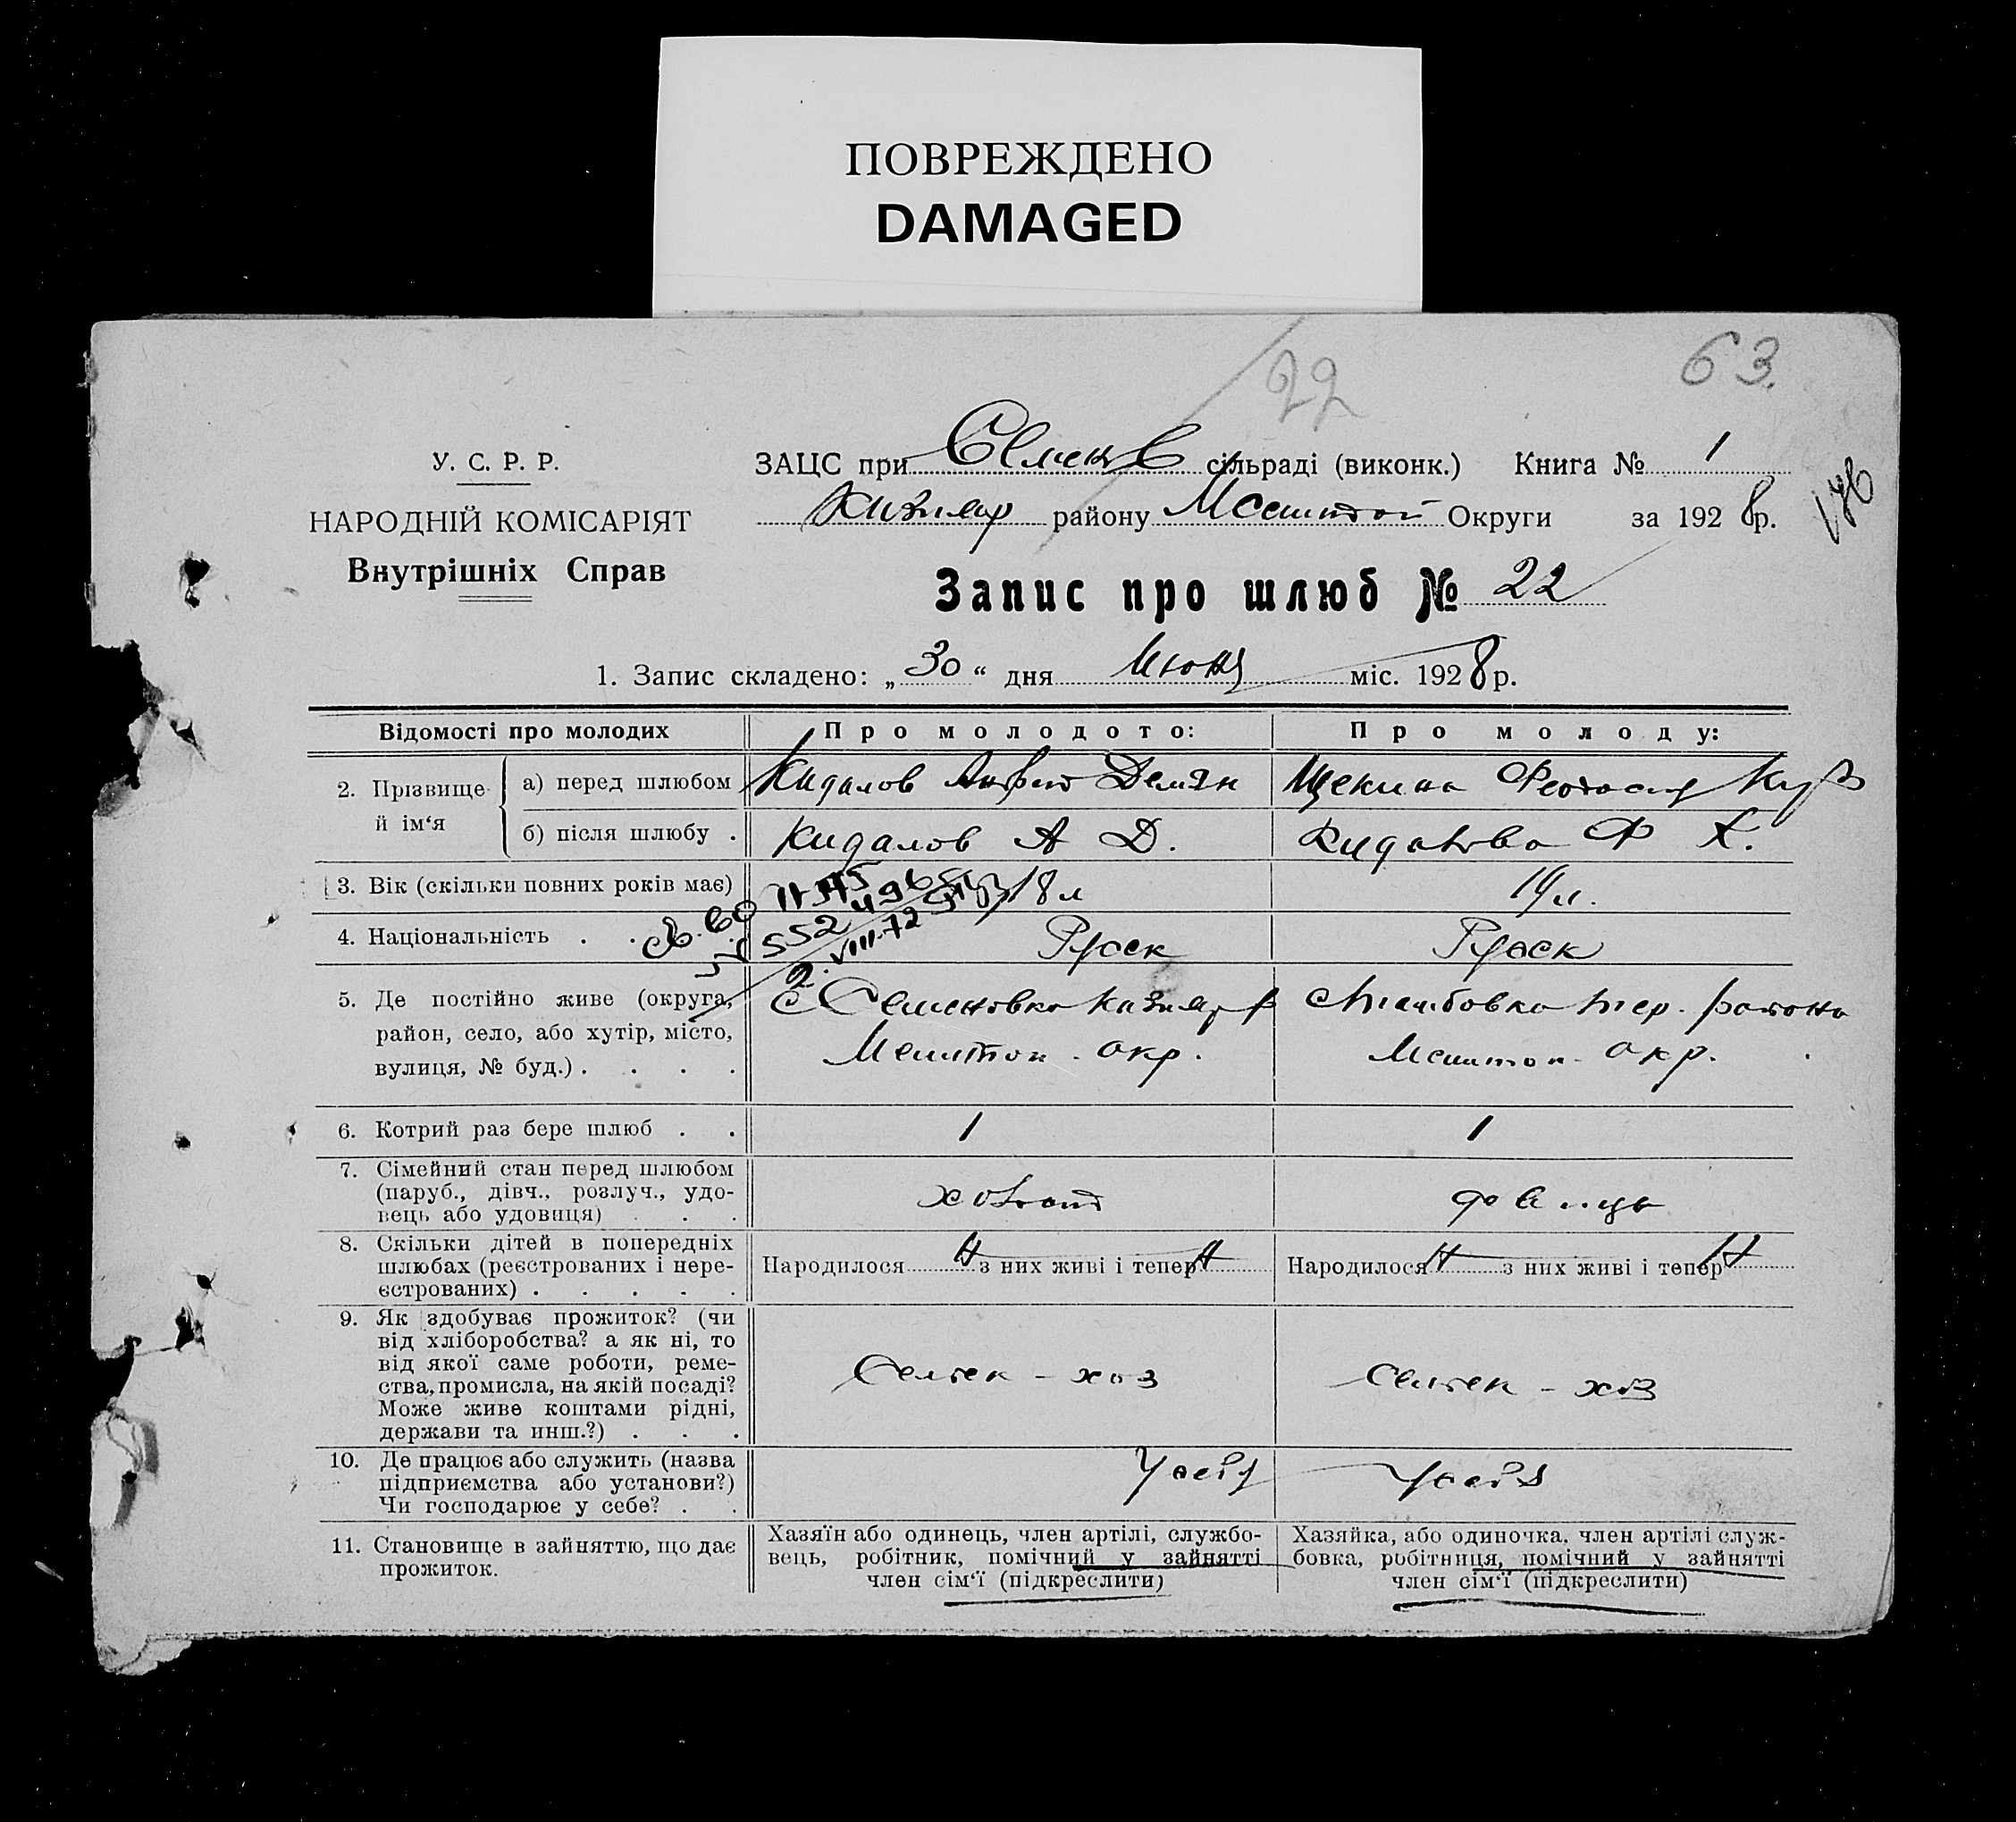 ПОВРЕЖДЕНО
DAMAGED
22
63.
У. С. Р. Р.
НАРОДНІЙ КОМІСАРІЯТ
Внутрішніх Справ
ЗАЦС при Семенов сільраді (виконк.) Книга № 1
Кизияр району Мелитопол Округи за 1928 р.
Запис про шлюб № 22
1. Запис складено: „30“ дня Июня міс. 1928 р.
Відомості про молодих
Про молодого:
Про молоду:
2. Прізвище й ім‘я
а) перед шлюбом
Кидалов Демян
Щекина Феодосия Куз
б) після шлюбу .
Кидалов А Д.
Кидалова Ф К.
3. Вік (скільки повних років має)
18 л
19 л.
4. Національність . .
Русск
Русск
552
VIII-72
5. Де постійно живе (округа,
район, село, або хутір, місто,
вулиця, № буд.) . . . .
с Семеновка Кизияр р
Мелитоп. окр.
с Тамбовка Тер. района
Мелитоп. окр.
6. Котрий раз бере шлюб . .
1
1
7. Сімейний стан перед шлюбом
(паруб., дівч., розлуч., удо-
вець або удовиця) . . .
холост
девица
8. Скільки дітей в попередніх
шлюбах (реєстрованих і нере-
єстрованих) . . . . .
Народилося Н з них живі і тепер Н
Народилося Н з них живі і тепер Н
9. Як здобуває прожиток? (чи
від хліборобства? а як ні, то
від якої саме роботи, реме-
ства, промисла, на якій посаді?
Може живе коштами рідні,
держави та инш.?) . . .
Сельск - хоз
Сельск - хоз
10. Де працює або служить (назва
підприємства або установи?)
Чи господарює у себе? . .
У себя
У себя
11. Становище в зайняттю, що дає
прожиток.
Хазяїн або одинець, член артілі, службо-
вець, робітник, помічний у зайнятті
член сім‘ї (підкреслити)
Хазяйка, або одиночка, член артілі служ-
бовка, робітниця, помічний у зайнятті
член сім‘ї (підкреслити)